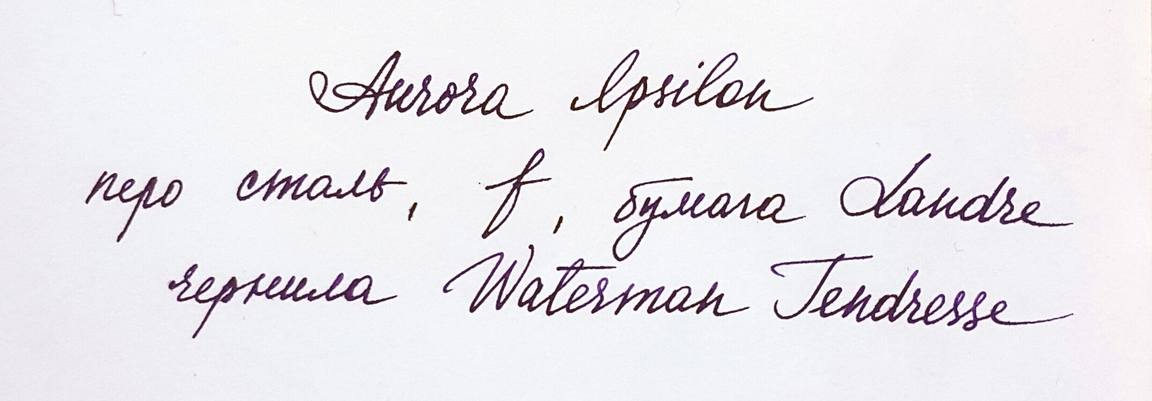 Aurora Ipsilon
перо сталь, f, бумага Landre
чернила Waterman Tendresse